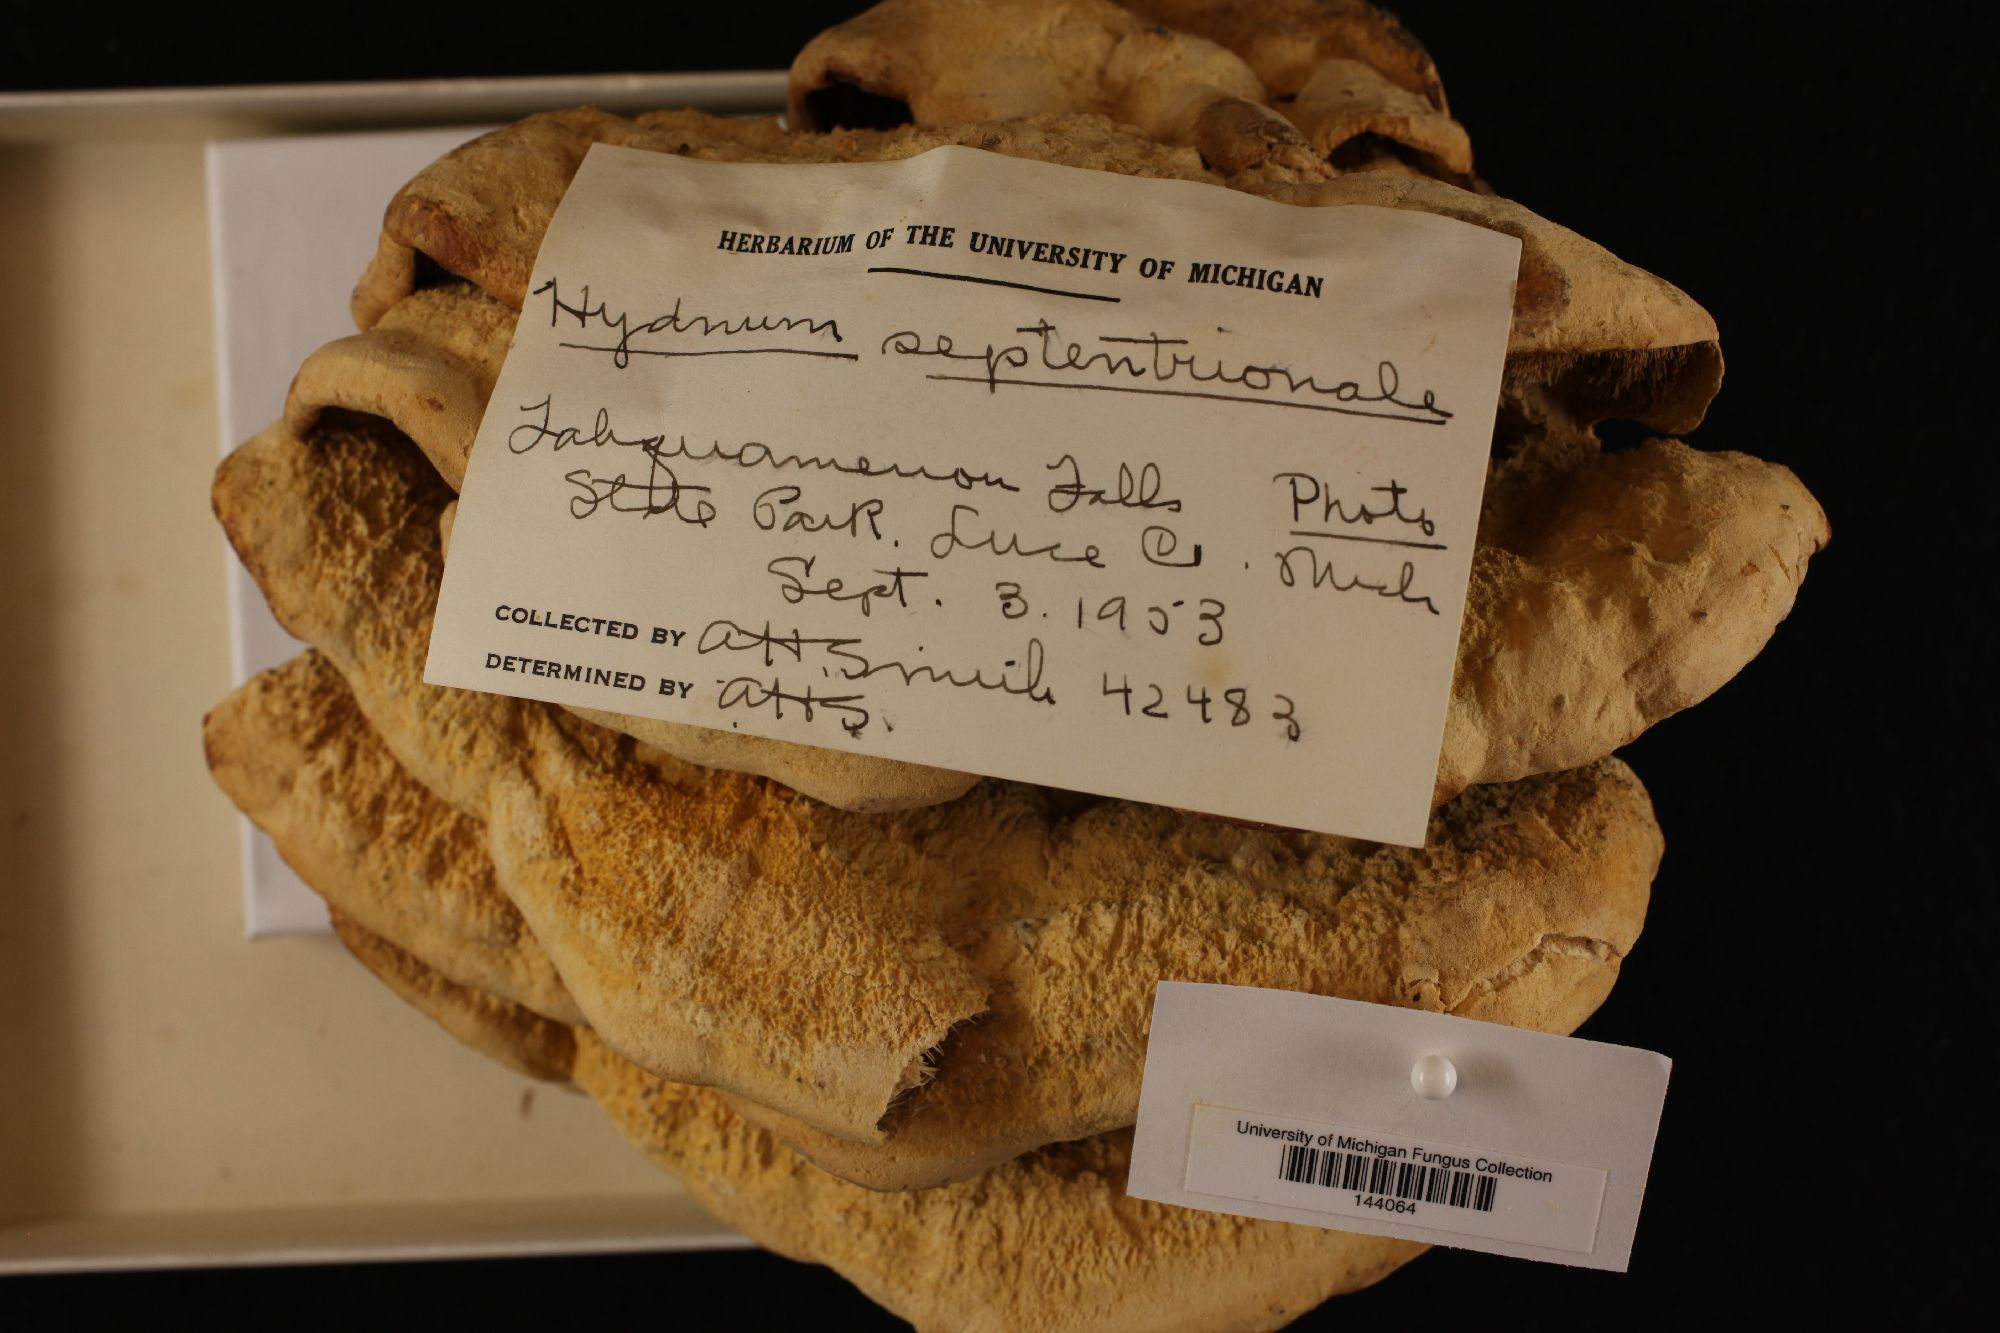 HERBARIUM OF THE UNIVERSITY OF MICHIGAN
Hydnum septentrionale
Tahquamenon Falls Photo
State Park. Luce Co. Mich
Sept. 3. 1953
COLLECTED BY AH.Smith 42483
DETERMINED BY AHS.
University of Michigan Fungus Collection
144064